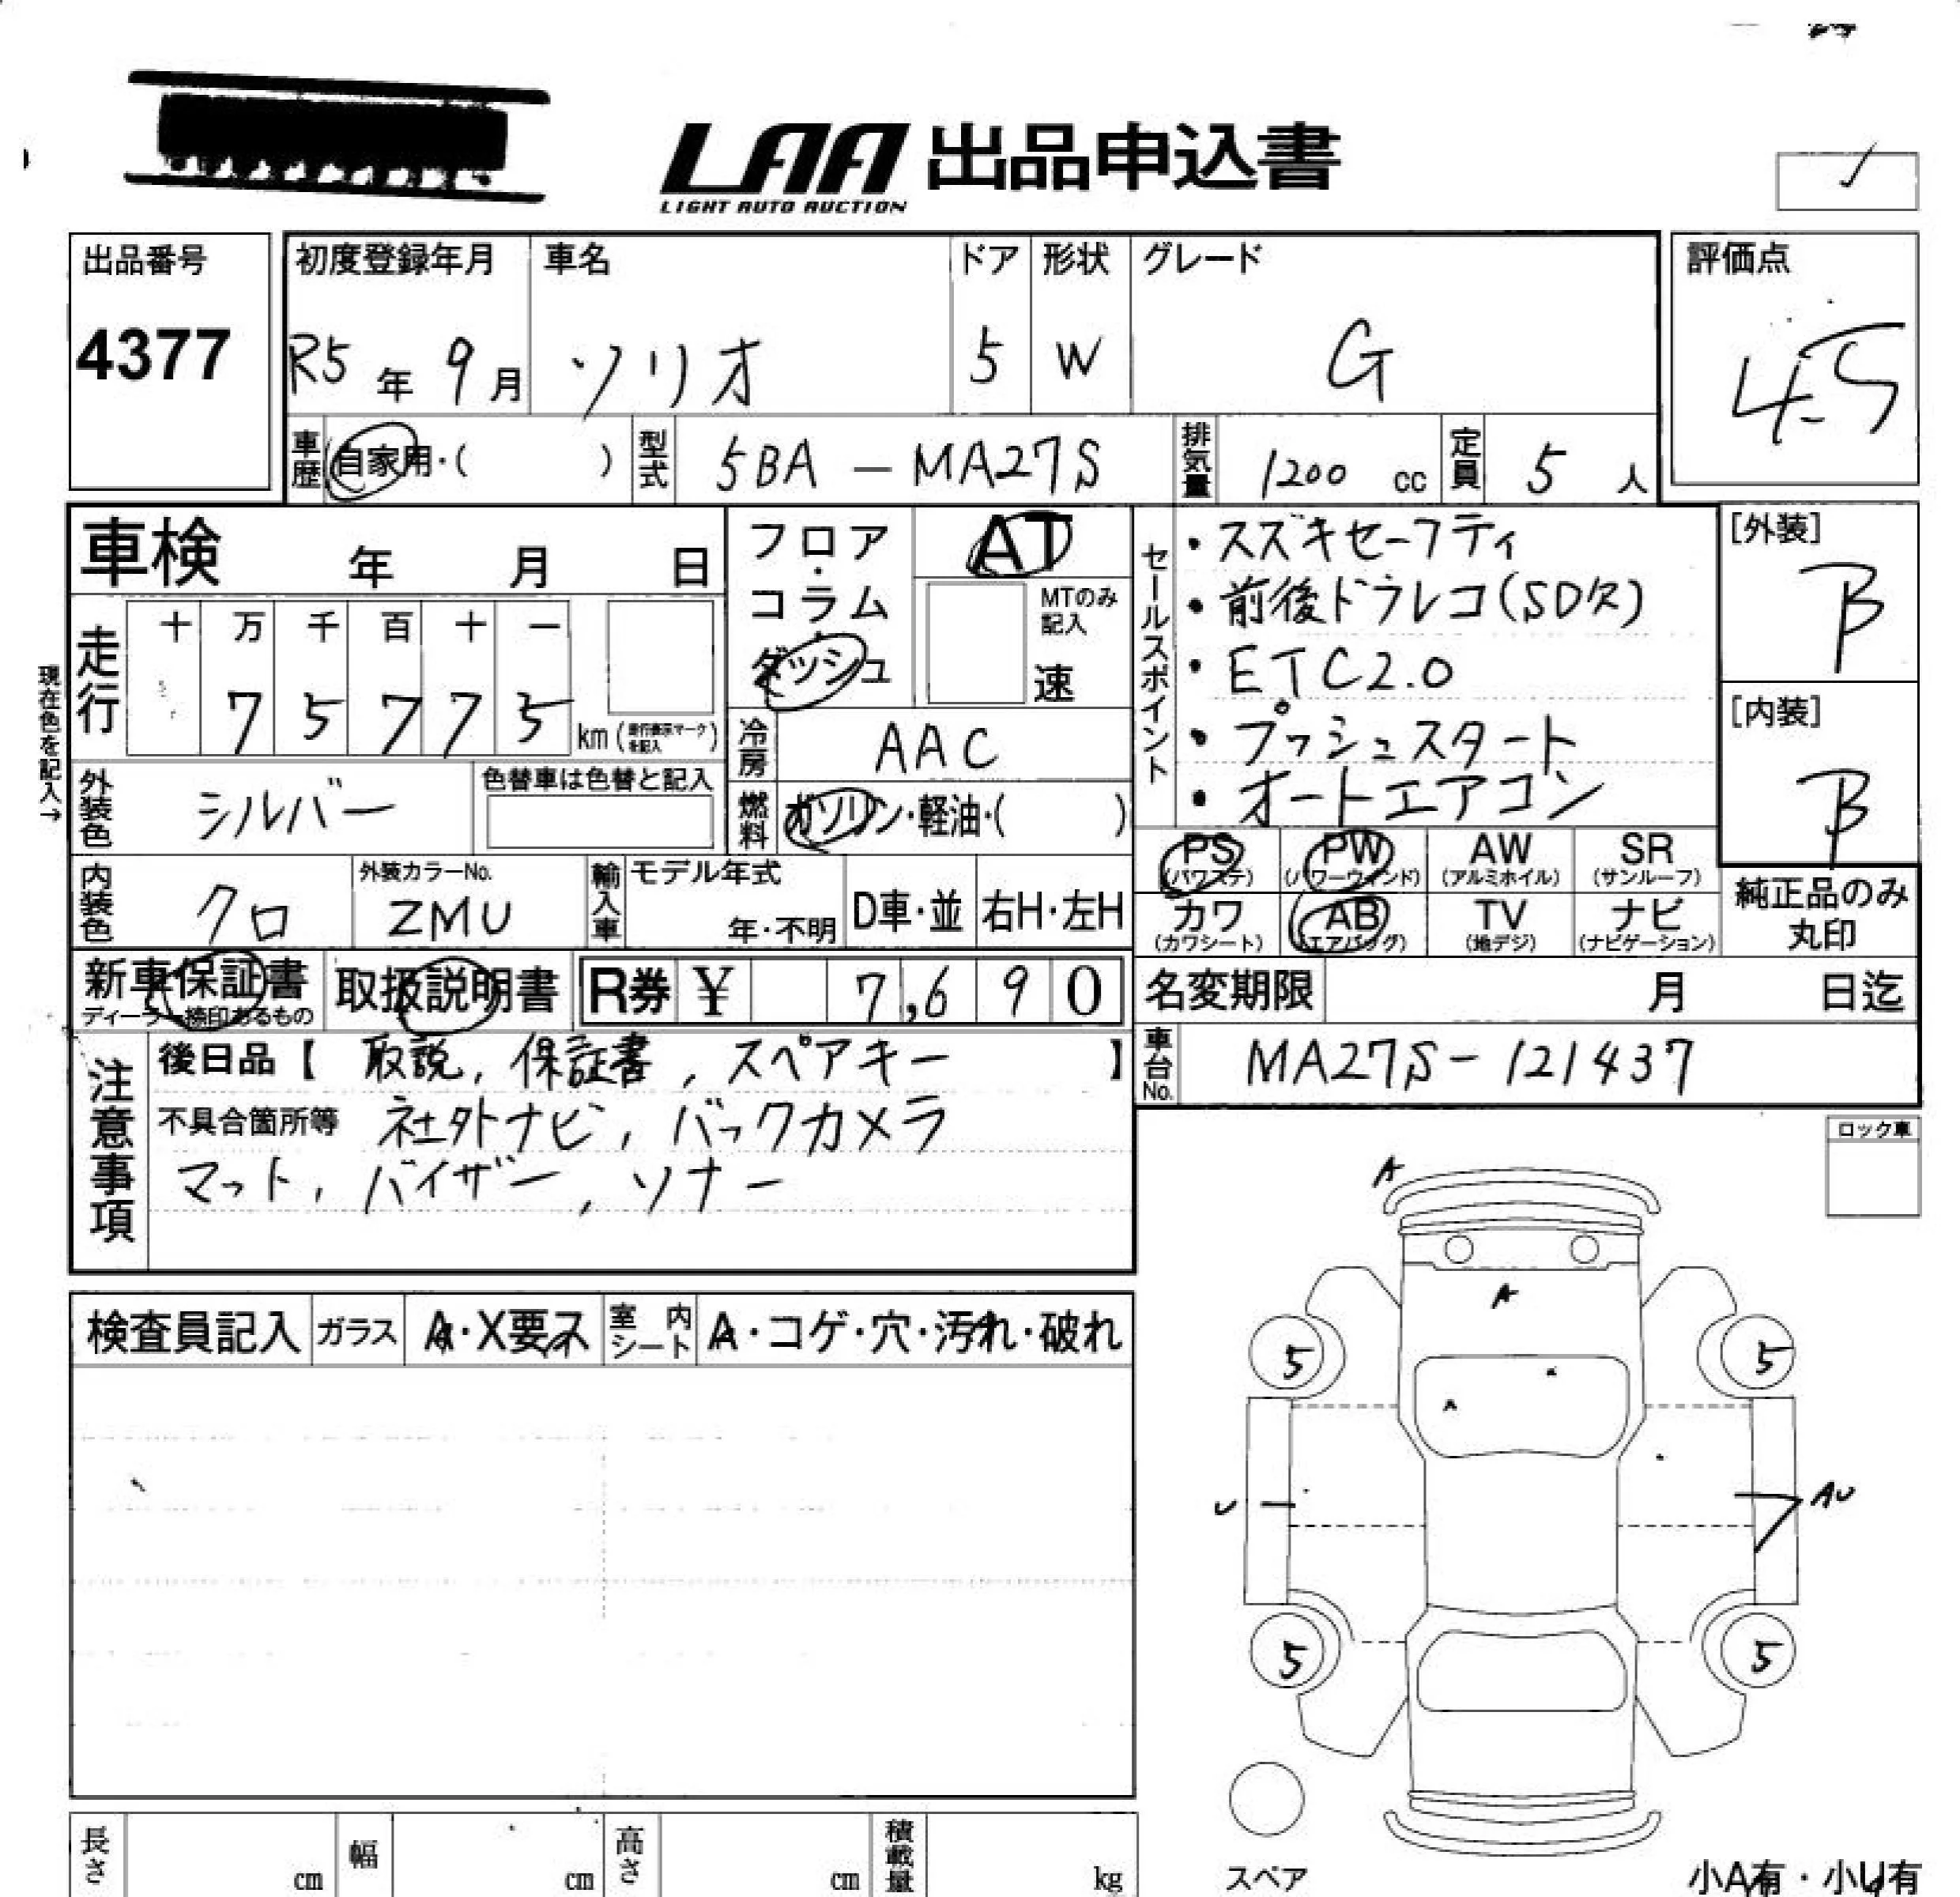 LAA 出品申込書
LIGHT AUTO AUCTION
出品番号
4377
初度登録年月
R5年 9月
車名
ソリオ
ドア
5
形状
W
グレード
G
評価点
4.5
車歴 自家用・( )
型式 5BA - MA27S
排気量 1200 cc
定員 5 人
車検 年 月 日
走行 十 万 千 百 十 一
7 5 7 7 5 km (走行表示マークを記入)
現在色を記入→
外装色 シルバー
色替車は色替と記入
内装色 クロ
外装カラーNo.
ZMU
輸入車
モデル年式
年・不明
D車・並
右H・左H
フロア・コラム・ダッシュ
AT
MTのみ記入
速
冷房 AAC
燃料 ガソリン・軽油・( )
セールスポイント
・スズキセーフティ
・前後ドラレコ(SD欠)
・ETC2.0
・プッシュスタート
・オートエアコン
[外装]
B
[内装]
B
PS (パワステ)
PW (パワーウィンド)
AW (アルミホイル)
SR (サンルーフ)
カワ (カワシート)
AB (エアバッグ)
TV (地デジ)
ナビ (ナビゲーション)
純正品のみ丸印
新車保証書
ディーラー捺印あるもの
取扱説明書
R券 ¥ 7,690
名変期限 月 日迄
車台No. MA27S-121437
注意事項
後日品【 取説, 保証書, スペアキー 】
不具合箇所等 社外ナビ, バックカメラ
マット, バイザー, ソナー
ロック車
検査員記入
ガラス A・X要ス
室内シート A・コゲ・穴・汚れ・破れ
A
A
5
5
A
U
AU
5
5
スペア
小A有・小U有
長さ cm
幅 cm
高さ cm
積載量 kg